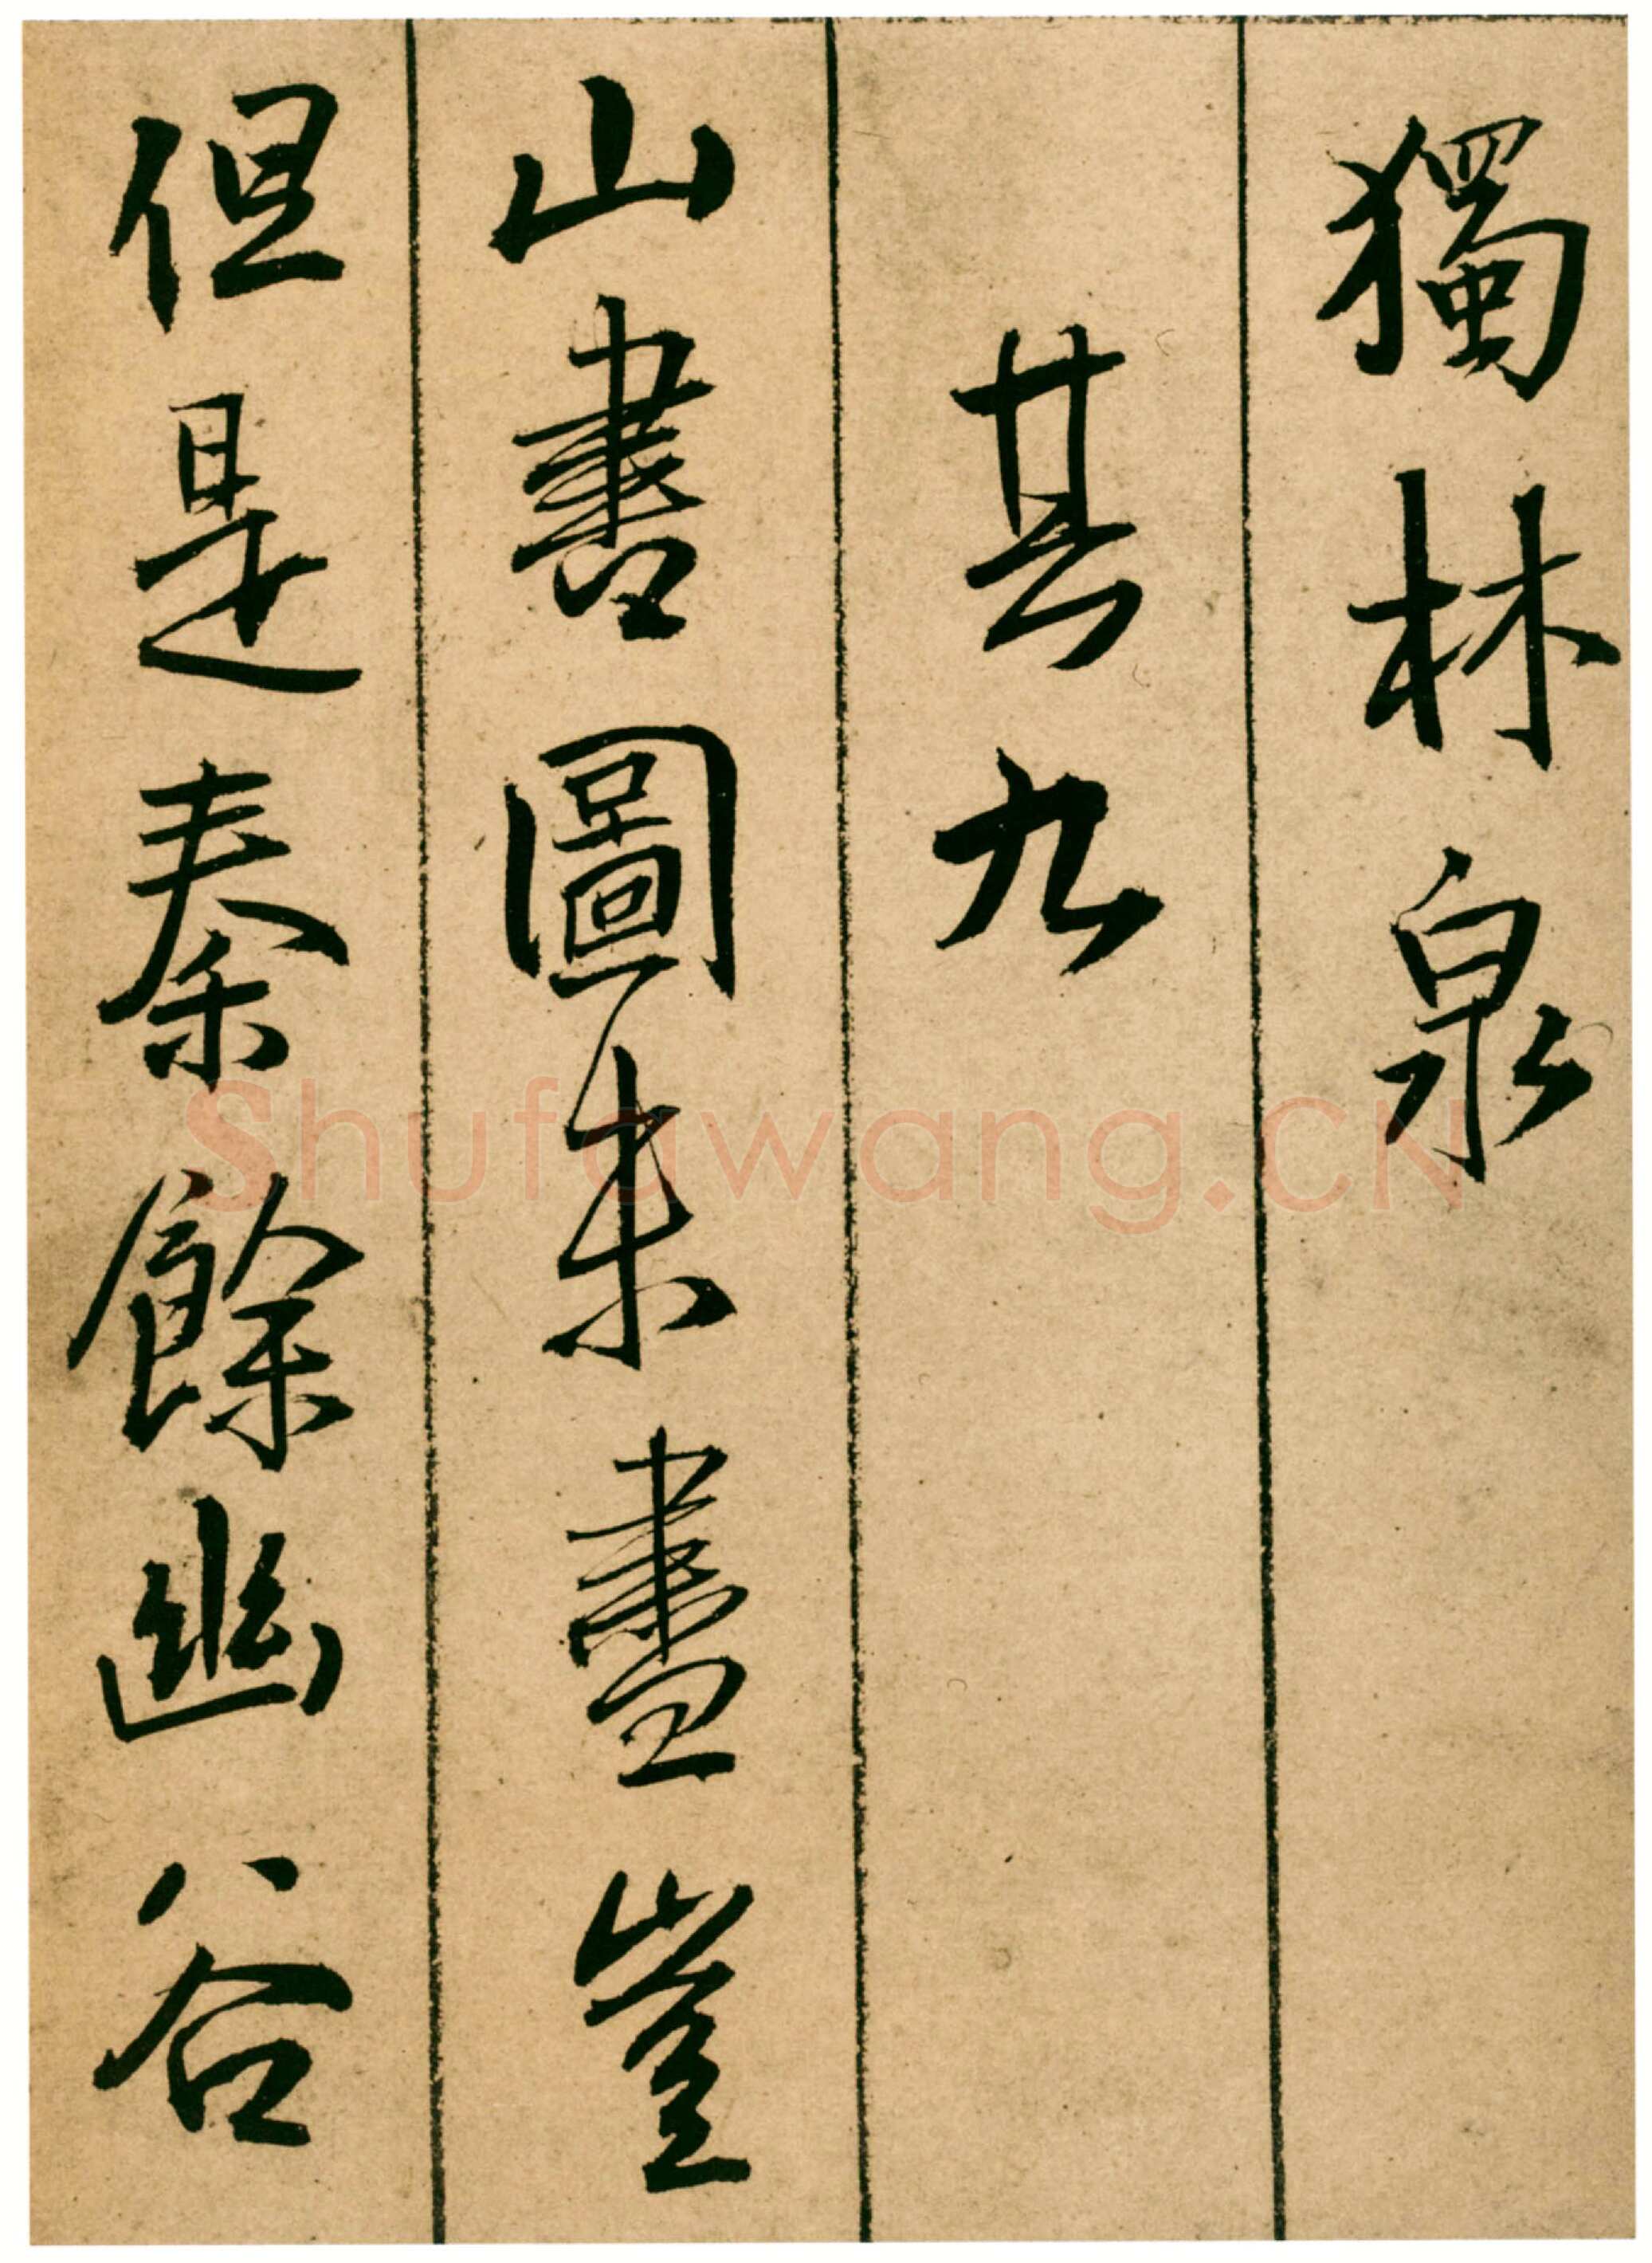 獨林泉
其九
山書圖未盡豈
但是秦餘幽谷
Shufawang.CN